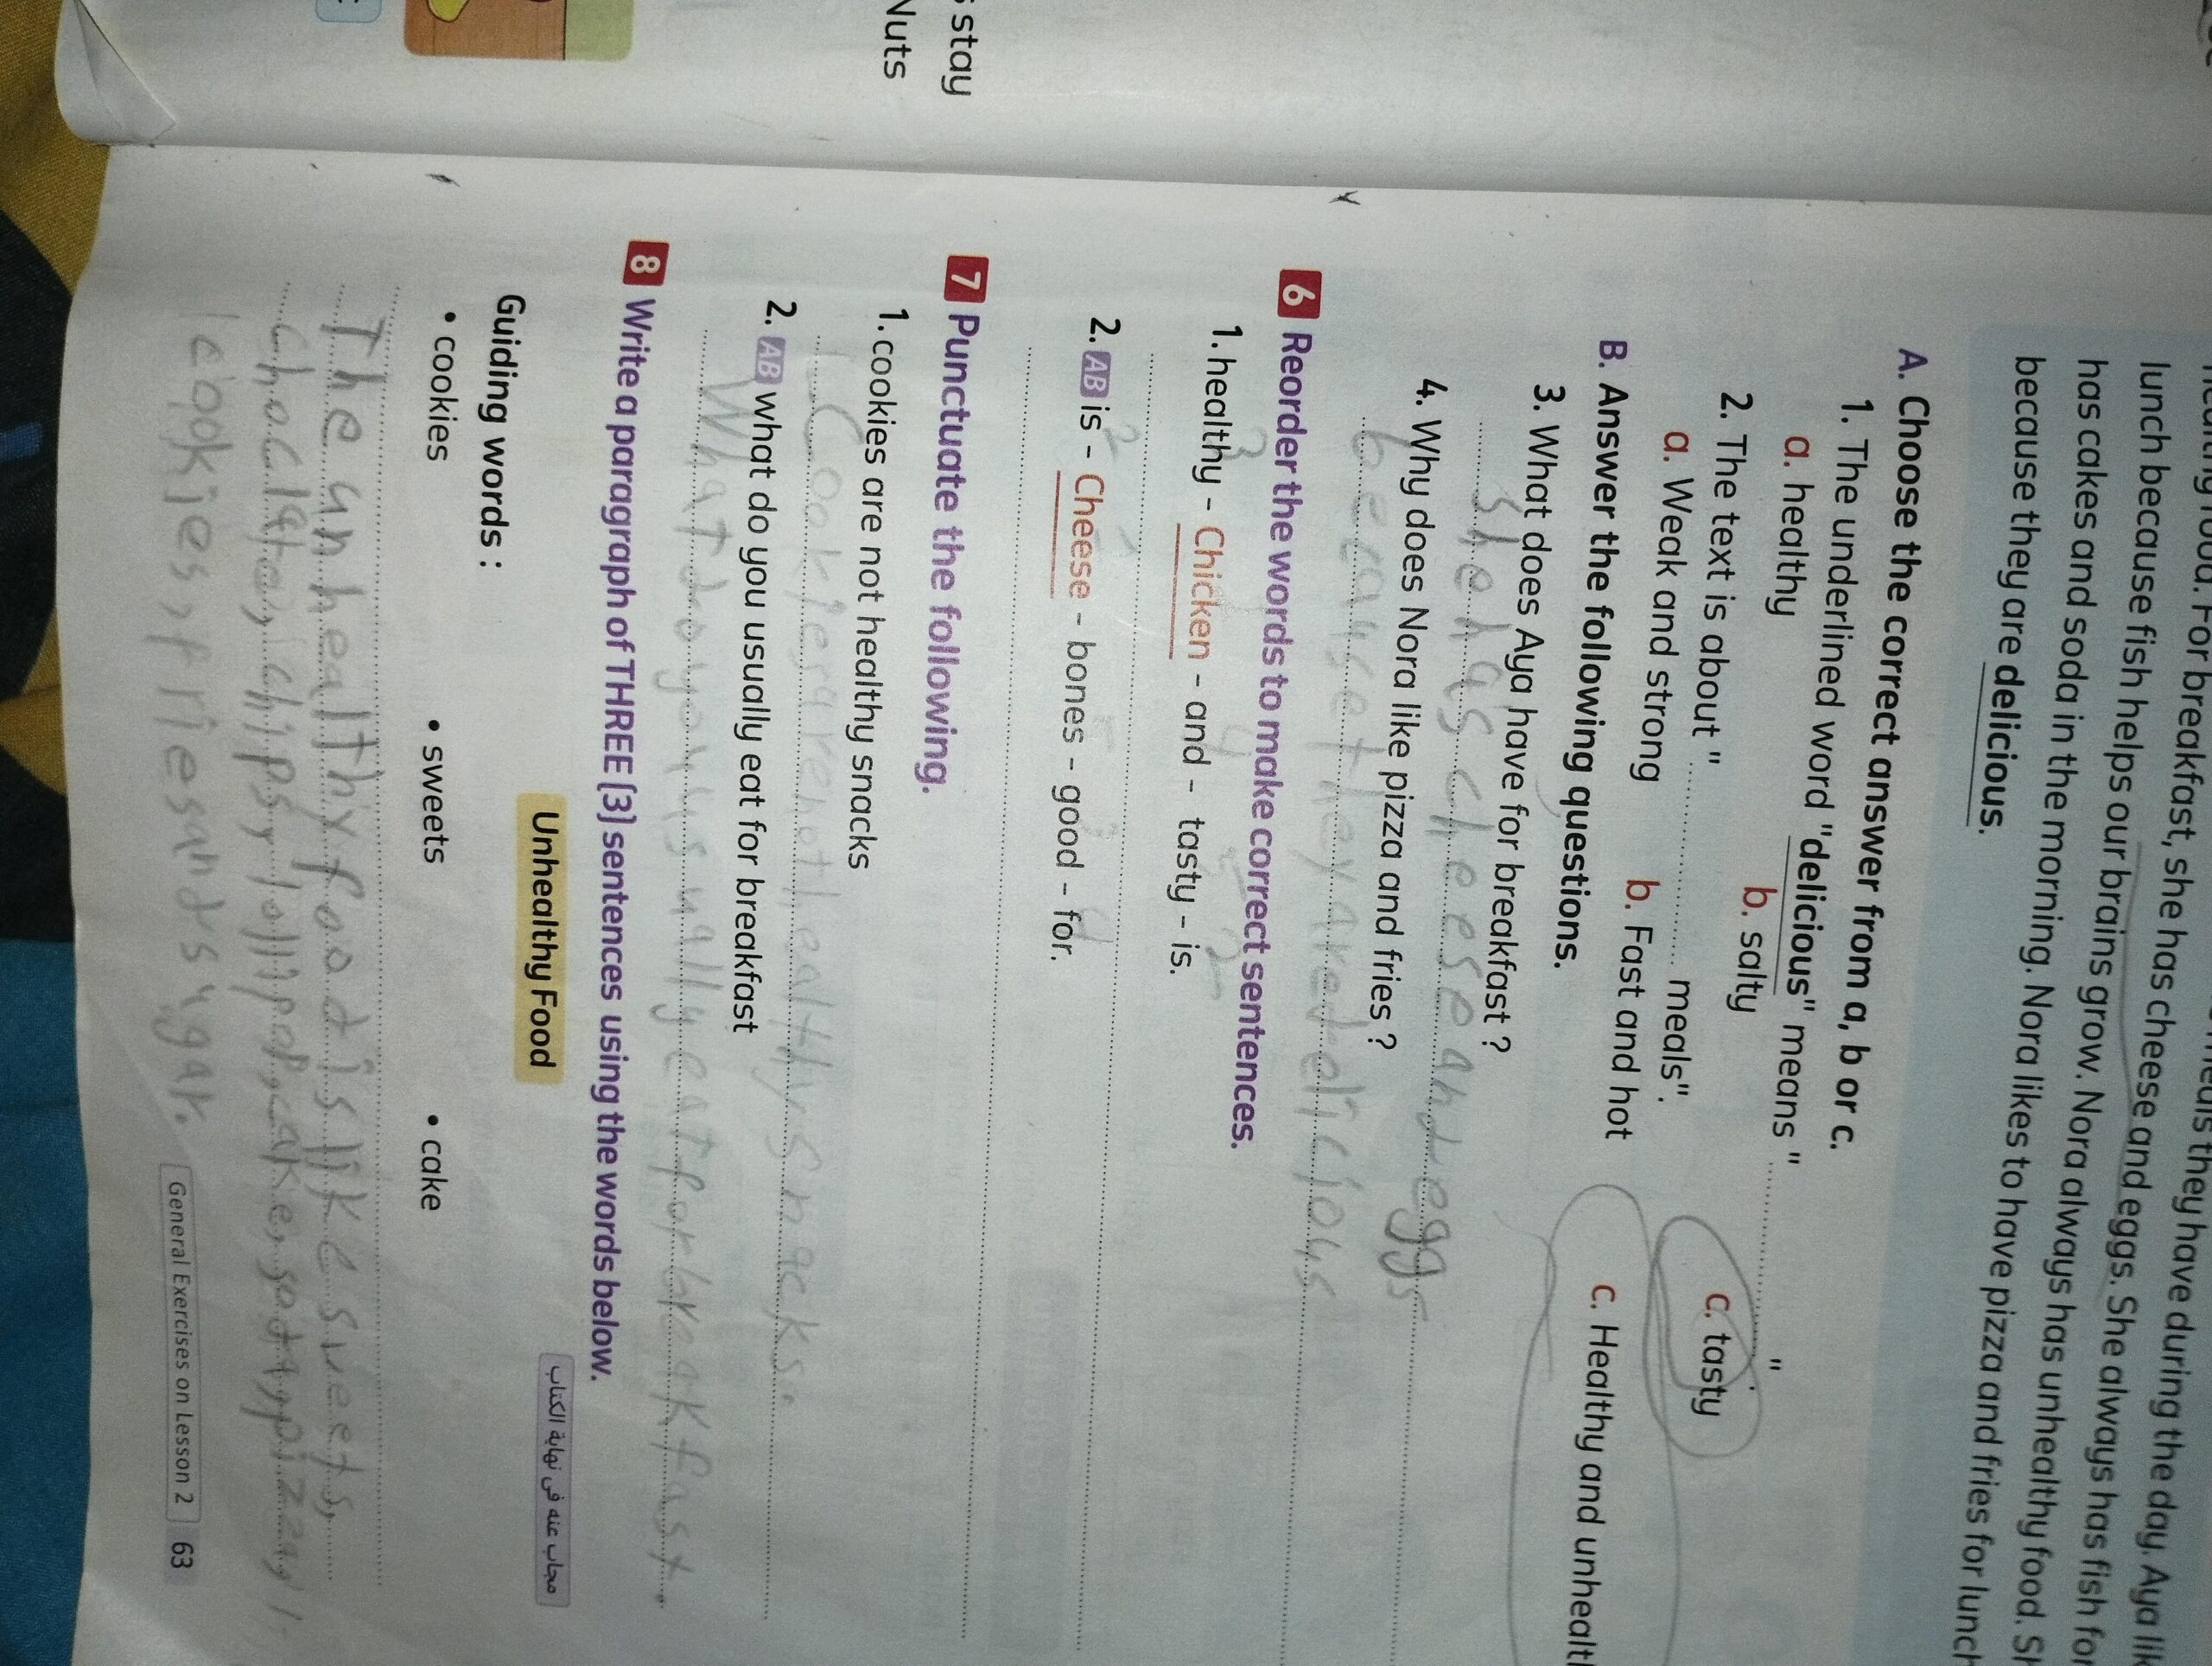 stay
Nuts
healthy food. For breakfast, she has cheese and eggs. She always has fish for
lunch because fish helps our brains grow. Nora always has unhealthy food. Sh
has cakes and soda in the morning. Nora likes to have pizza and fries for lunch
because they are delicious.
A. Choose the correct answer from a, b or c.
1. The underlined word "delicious" means "............".
a. healthy b. salty c. tasty
2. The text is about "............ meals".
a. Weak and strong b. Fast and hot c. Healthy and unhealt
B. Answer the following questions.
3. What does Aya have for breakfast ?
She has cheese and eggs
4. Why does Nora like pizza and fries ?
because they are delicious
6 Reorder the words to make correct sentences.
3 1 4 2
1. healthy - Chicken - and - tasty - is.
2 1
2. AB is - Cheese - bones - good - for.
7 Punctuate the following.
1. cookies are not healthy snacks
Cookies are not healthy snacks.
2. AB what do you usually eat for breakfast
What do you usually eat for breakfast.
8 Write a paragraph of THREE (3) sentences using the words below.
Unhealthy Food
مجاب عنه فى نهاية الكتاب
Guiding words :
• cookies • sweets • cake
The unhealthy food is like sweets,
chips, cake, soda, pizza
cookies, fries and sugar.
General Exercises on Lesson 2 63